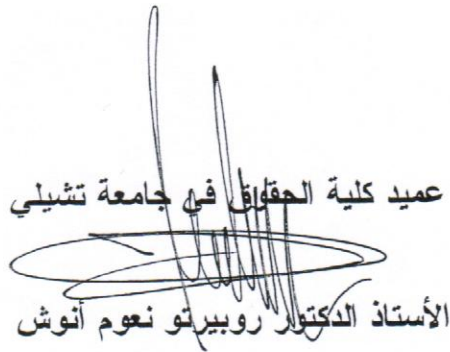 عميد كلية الحقوق في جامعة تشيلي
الأستاذ الدكتور روبيرتو نعوم أنوش